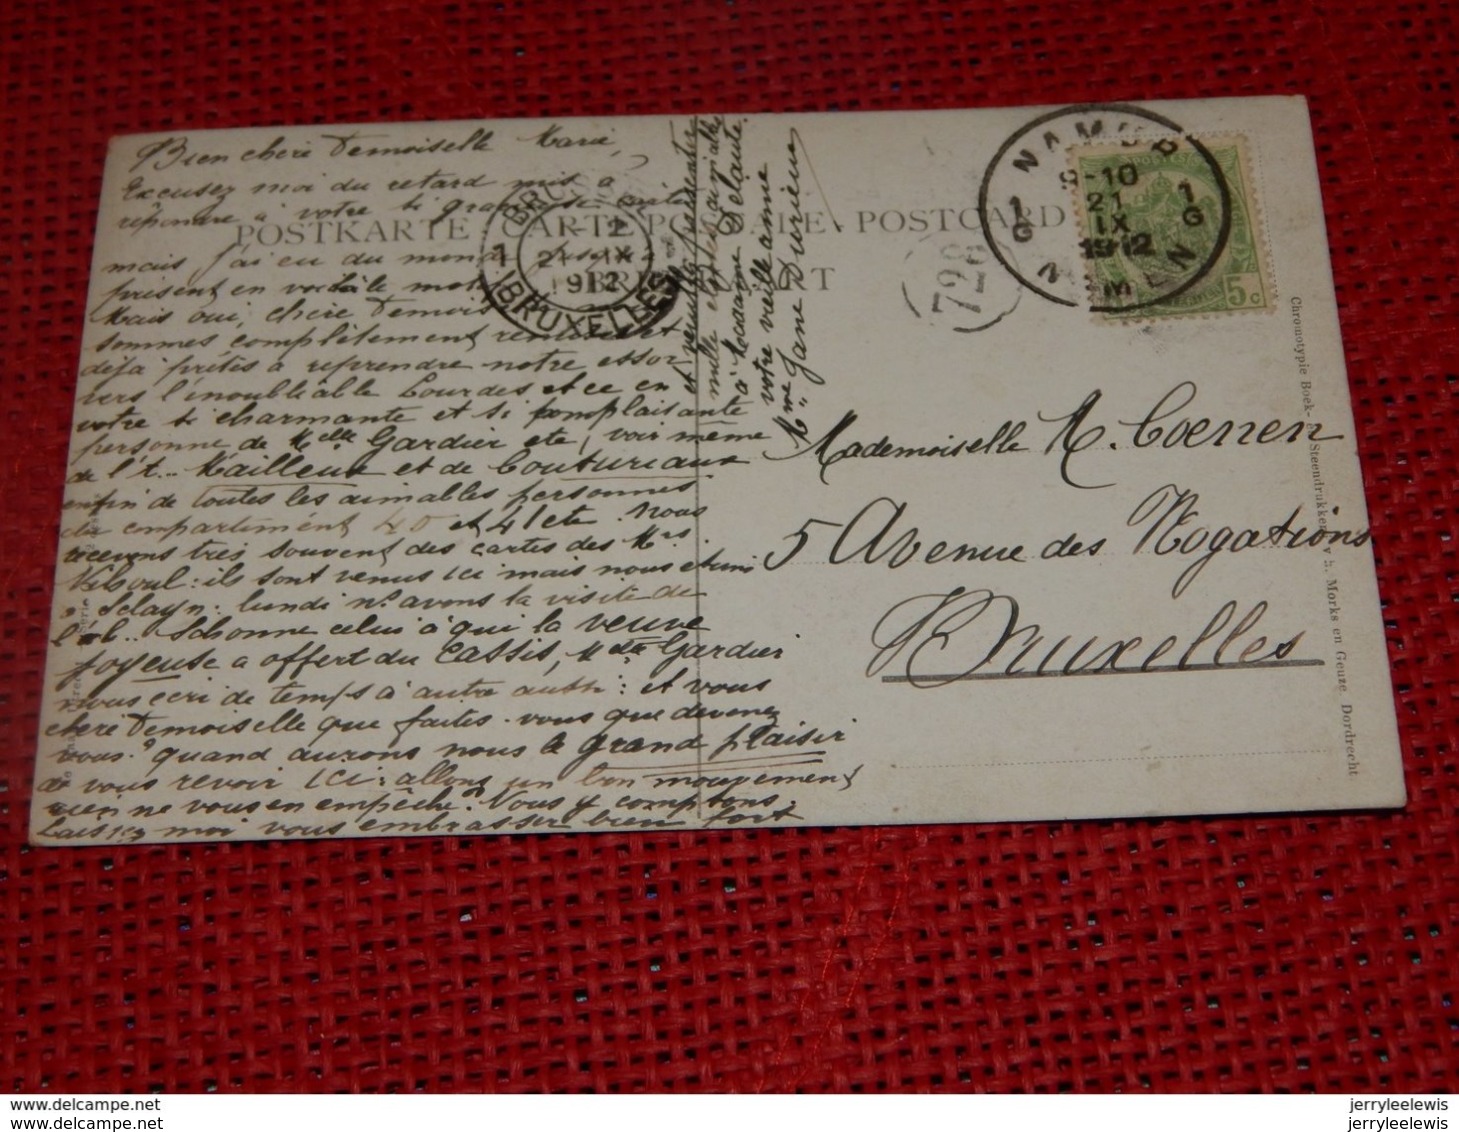 Bien chère Demoiselle Marie,
Excusez moi du retard mis à
répondre à votre si gracieuse carte
mais j'ai eu du monde
présent en voilà le mot
Mais oui, chère Demois
sommes complètement
déjà prêtes à reprendre notre essor
vers l'inoubliable Lourdes et ce en
votre si charmante et si complaisante
personne de Melle Gardier etc, voir même
de l't.. Mailleux et de Couturiaux
enfin de toutes les aimables personnes
du compartiment 40 et 41 etc. Nous
recevons très souvent des cartes des Mrs.
: ils sont venus ici mais nous
Sclayn : lundi ns. avons la visite de
l'ab.. Schonne celui à qui la veuve
joyeuse a offert du cassis, Melle Gardier
nous écri de temps à autre aussi : et vous
chère Demoiselle que faites-vous que devenez
vous? quand aurons nous le grand plaisir
de vous revoir ici : allons un bon mouvement
rien ne vous en empêche? Nous y comptons.
Laissez moi vous embrasser bien fort
et veuillez présenter
mille choses aimables
à Madame Delaute.
votre vieille amie
Mme Jane Durieux
POSTKARTE CARTE POSTALE POSTCARD
BRUXELLES
1
2
21 IX
1912
BRUXELLES
728
NAMUR
9-10
21
IX
1912
1
G
1
G
NAMEN
POSTES
5 c
Mademoiselle M. Coenen
5 Avenue des Rogations
Bruxelles
Chromotypie Boek- Steendrukkerij v h. Morks en Geuze Dordrecht
www.delcampe.net
www.delcampe.net
jerryleelewis
jerryleelewis